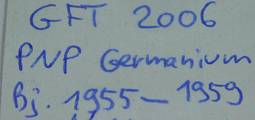 GFT 2006
PNP Germanium
Bj. 1955 - 1959